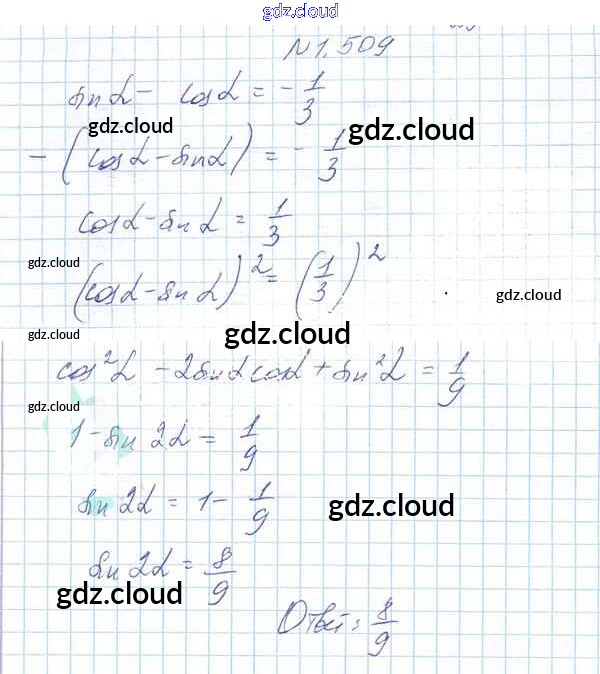 gdz.cloud
N 1.509
sin α - cos α = - 1/3
gdz.cloud gdz.cloud
- (cos α - sin α) = - 1/3
cos α - sin α = 1/3
gdz.cloud
(cos α - sin α)² = (1/3)²
gdz.cloud
gdz.cloud gdz.cloud
cos²α - 2 sin α cos α + sin²α = 1/9
gdz.cloud
1 - sin 2α = 1/9
sin 2α = 1 - 1/9
gdz.cloud
sin 2α = 8/9
gdz.cloud
Ответ: 8/9
gdz.cloud